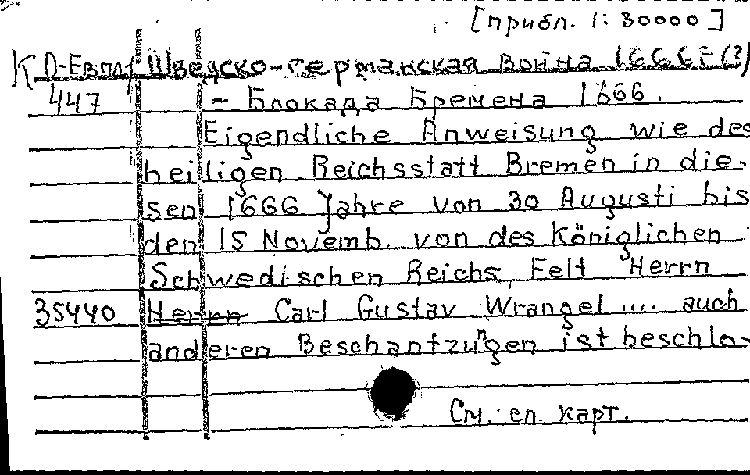 [прибл. 1:30000]
К О-Евпл Шведско-германская война 1666г(?)
447 - Блокада Бремена 1666.
Eigendliche Anweisung wie des
heiligen Reichsstatt Bremen in die-
sen 1666 Jahre von 30 Augusti bis
den 15 Novemb. von des Königlichen
Schwedischen Reichs, Felt Herrn
35440 Herrn Carl Gustav Wrangel .... auch
anderen Beschantzungen ist beschla-
См. сл. карт.